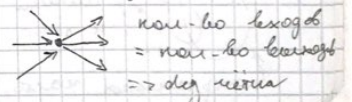 кол-во входов
= кол-во выходов
=> deg чётна